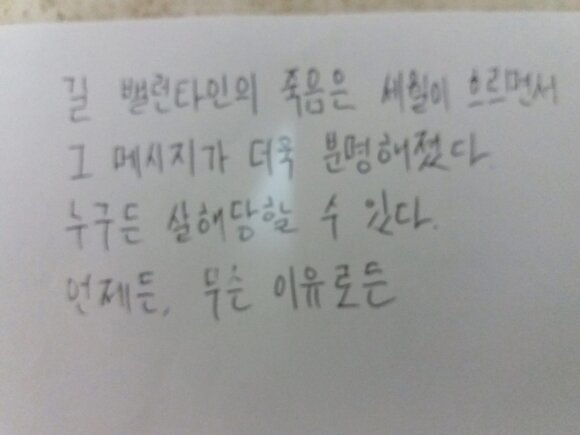 길 밸런타인의 죽음은 세월이 흐르면서
그 메시지가 더욱 분명해졌다.
누구든 살해당할 수 있다.
언제든, 무슨 이유로든